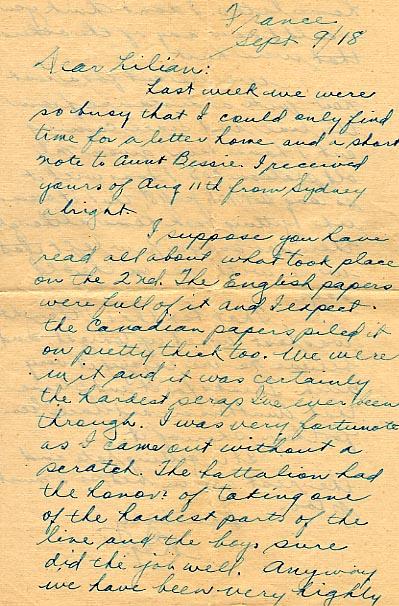 France
Sept 9/18
Dear Lilian:
Last week we were
so busy that I could only find
time for a letter home and a short
note to Aunt Bessie. I received
yours of Aug 11th from Sydney
alright.
I suppose you have
read all about what took place
on the 2nd. The English papers
were full of it and I expect
the Canadian papers piled it
on pretty thick too. We were
in it and it was certainly
the hardest scrap I've ever been
through. I was very fortunate
as I came out without a
scratch. The battalion had
the honor of taking one
of the hardest parts of the
line and the boys sure
did the job well. Anyway
we have been very highly